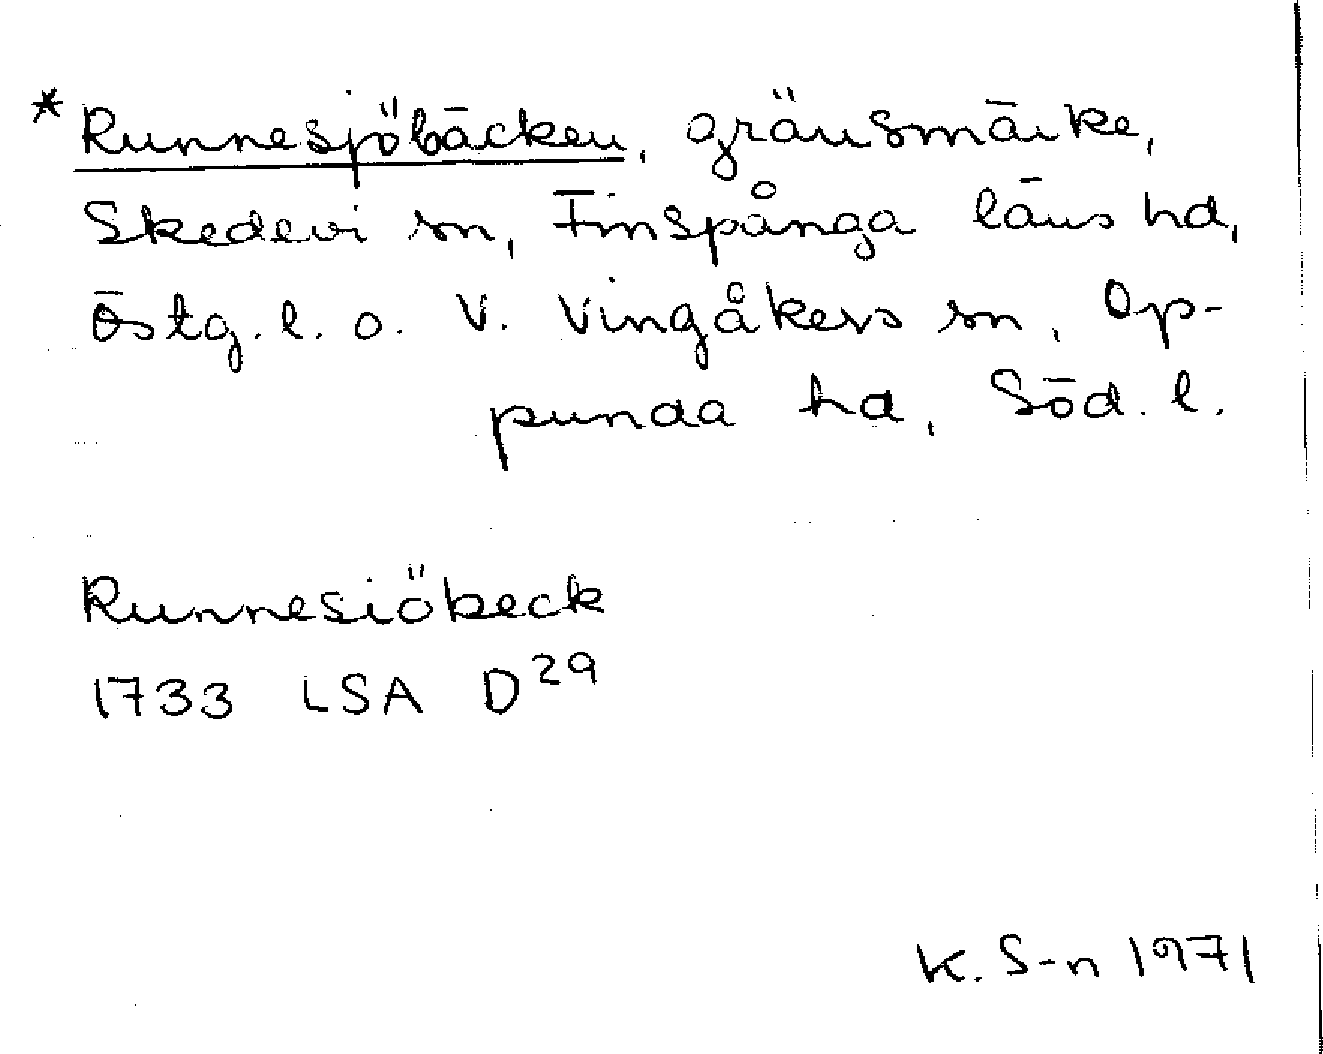 * Runnesjöbäcken, gränsmärke,
Skedevi sn, Finspånga läns hd,
Östg. l. o. V. Vingåkers sn, Op-
punda hd, Söd. l.
Runnesiöbeck
1733 LSA D²⁹
K. S-n 1971